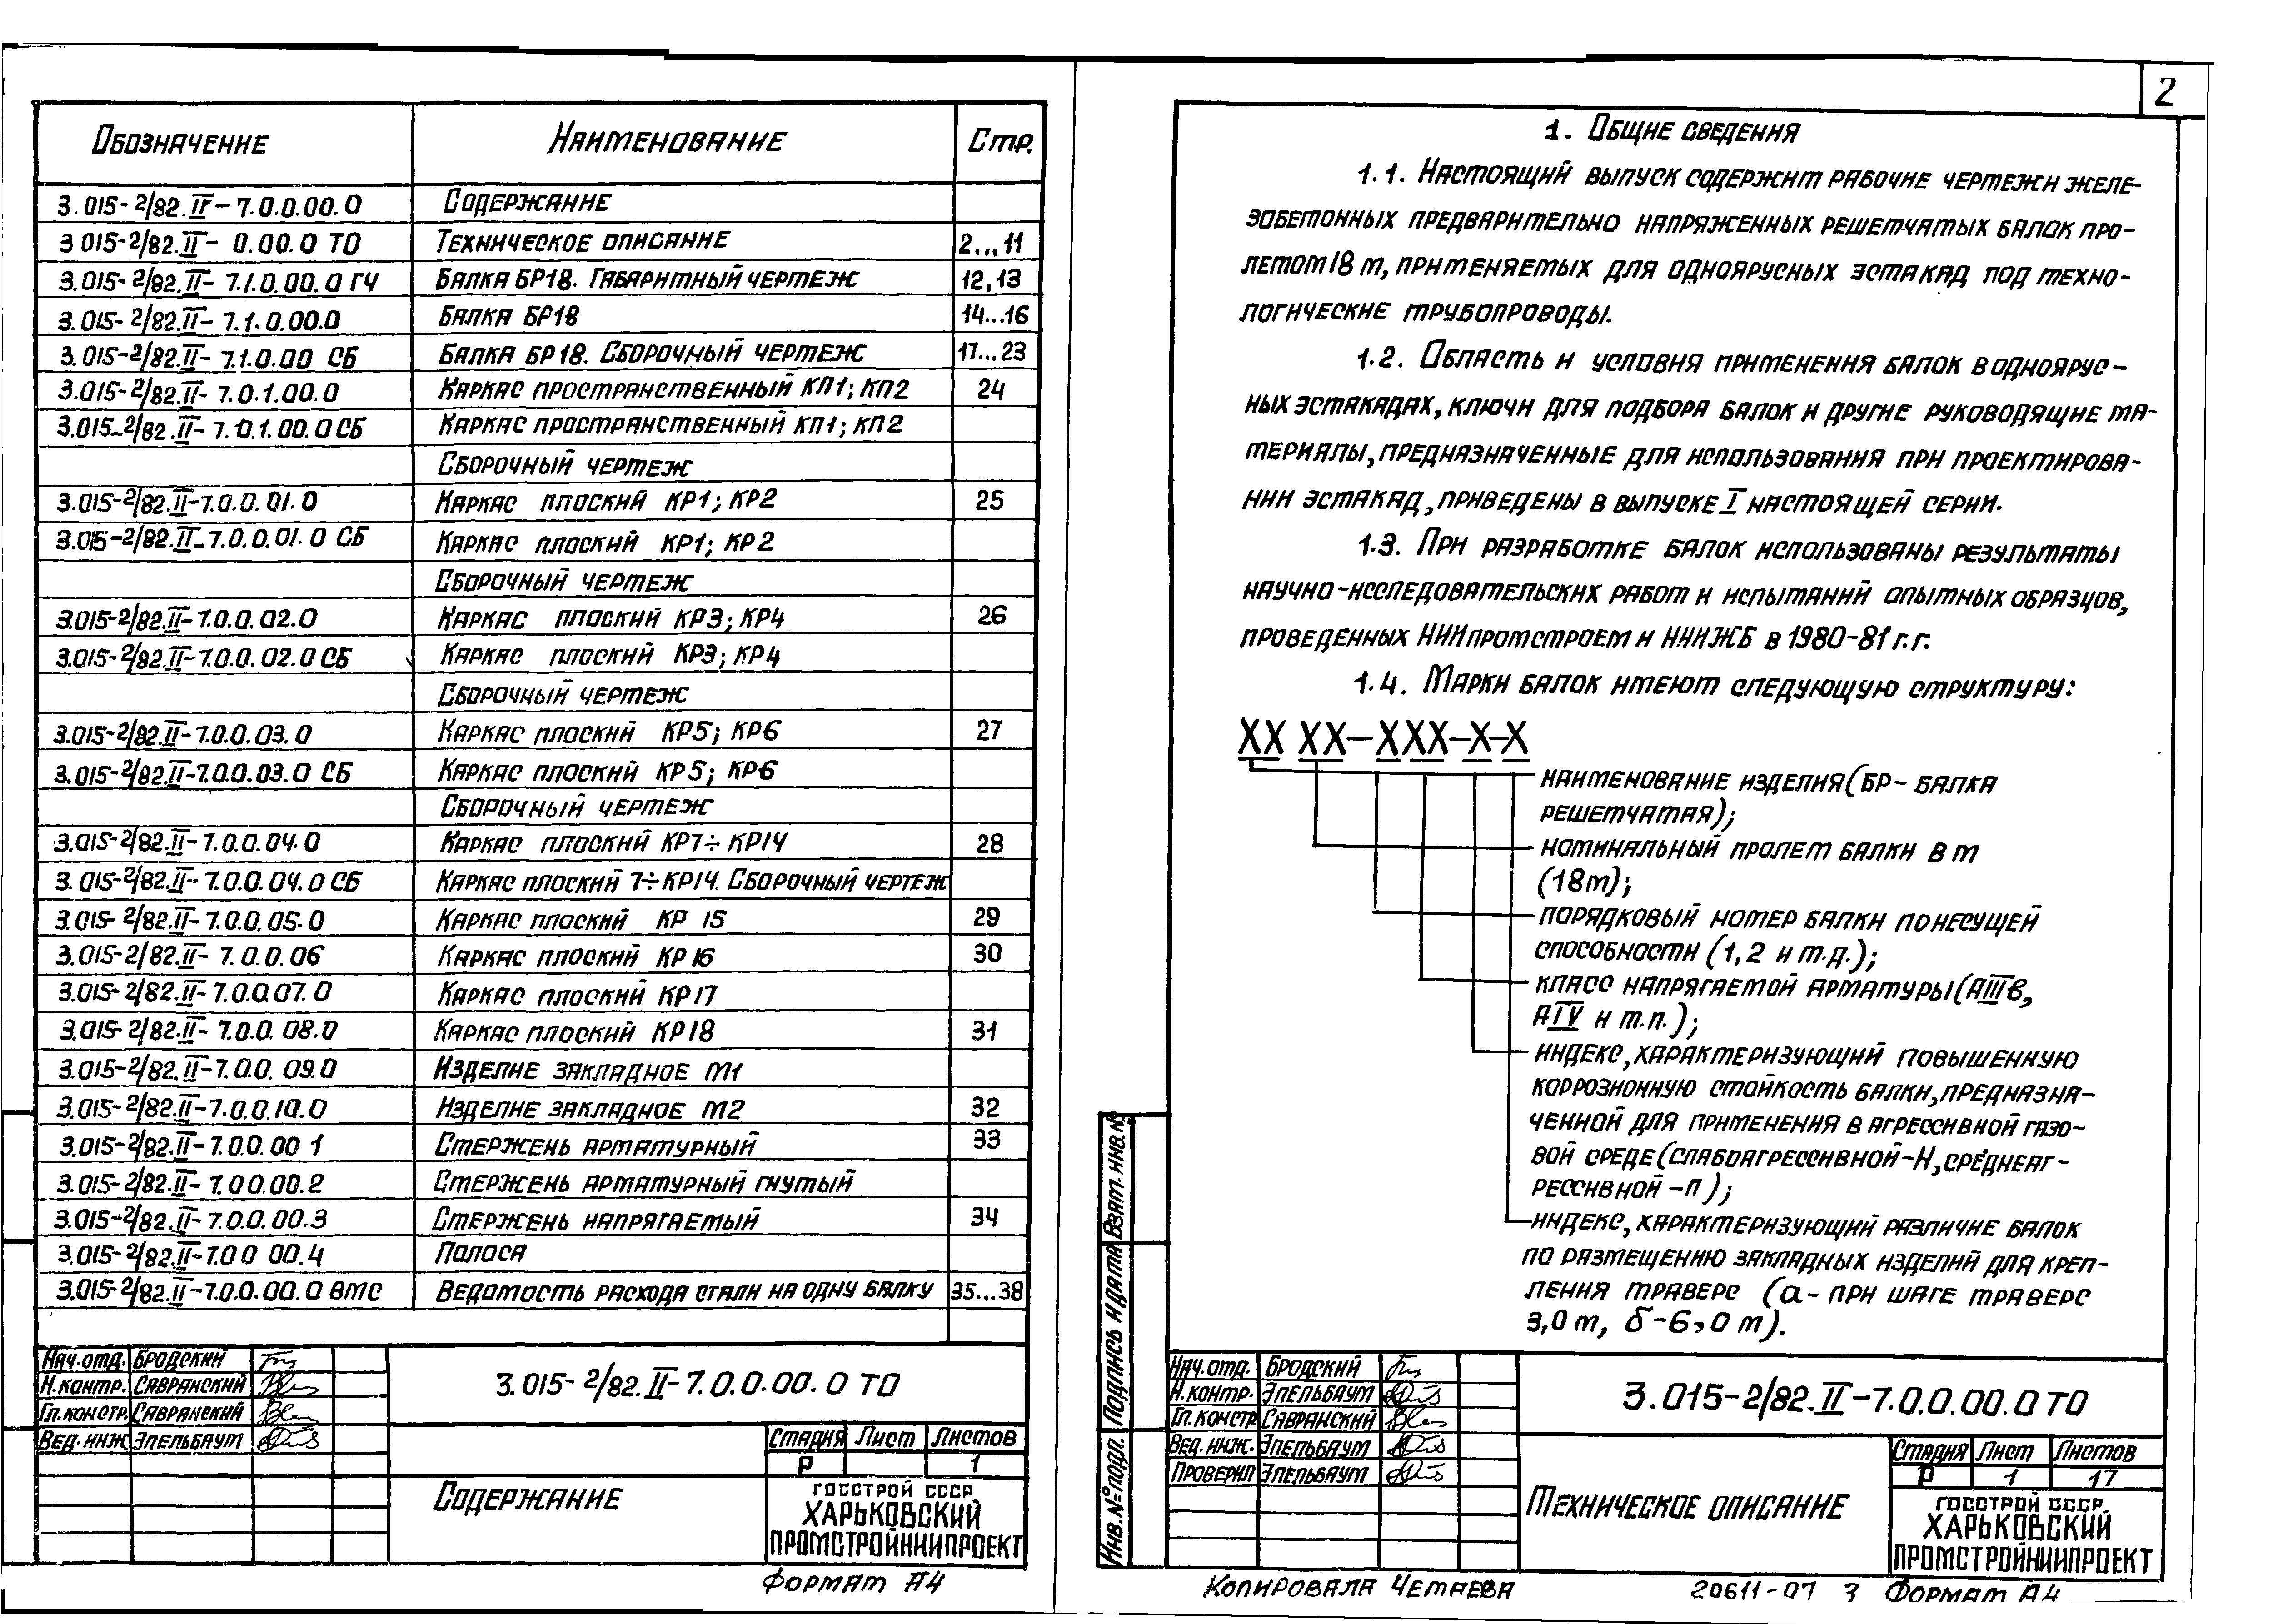 Обозначение Наименование Стр.
3.015-2/82.II-7.0.0.00.0 Содержание
3.015-2/82.II-0.00.0 ТО Техническое описание 2...11
3.015-2/82.II-7.1.0.00.0 ГЧ Балка БР18. Габаритный чертеж 12,13
3.015-2/82.II-7.1.0.00.0 Балка БР18 14...16
3.015-2/82.II-7.1.0.00 СБ Балка БР18. Сборочный чертеж 17...23
3.015-2/82.II-7.0.1.00.0 Каркас пространственный КП1; КП2 24
3.015-2/82.II-7.0.1.00.0 СБ Каркас пространственный КП1; КП2
Сборочный чертеж
3.015-2/82.II-7.0.0.01.0 Каркас плоский КР1; КР2 25
3.015-2/82.II-7.0.0.01.0 СБ Каркас плоский КР1; КР2
Сборочный чертеж
3.015-2/82.II-7.0.0.02.0 Каркас плоский КР3; КР4 26
3.015-2/82.II-7.0.0.02.0 СБ Каркас плоский КР3; КР4
Сборочный чертеж
3.015-2/82.II-7.0.0.03.0 Каркас плоский КР5; КР6 27
3.015-2/82.II-7.0.0.03.0 СБ Каркас плоский КР5; КР6
Сборочный чертеж
3.015-2/82.II-7.0.0.04.0 Каркас плоский КР7÷КР14 28
3.015-2/82.II-7.0.0.04.0 СБ Каркас плоский 7÷КР14. Сборочный чертеж
3.015-2/82.II-7.0.0.05.0 Каркас плоский КР 15 29
3.015-2/82.II-7.0.0.06 Каркас плоский КР 16 30
3.015-2/82.II-7.0.0.07.0 Каркас плоский КР17
3.015-2/82.II-7.0.0.08.0 Каркас плоский КР18 31
3.015-2/82.II-7.0.0.09.0 Изделие закладное М1
3.015-2/82.II-7.0.0.10.0 Изделие закладное М2 32
3.015-2/82.II-7.0.0.00 1 Стержень арматурный 33
3.015-2/82.II-7.0 0.00.2 Стержень арматурный гнутый
3.015-2/82.II-7.0.0.00.3 Стержень напрягаемый 34
3.015-2/82.II-7.0 0 00.4 Полоса
3.015-2/82.II-7.0.0.00.0 ВМС Ведомость расхода стали на одну балку 35...38
Нач.отд. Бродский
Н.контр. Савранский
Гл.констр. Савранский
Вед.инж. Эпельбаум
3.015-2/82.II-7.0.0.00.0 ТО
Содержание
Стадия Лист Листов
Р 1
ГОССТРОЙ СССР
ХАРЬКОВСКИЙ
ПРОМСТРОЙНИИПРОЕКТ
Формат А4
2
1. Общие сведения
1.1. Настоящий выпуск содержит рабочие чертежи желе-
зобетонных предварительно напряженных решетчатых балок про-
летом 18 м, применяемых для одноярусных эстакад под техно-
логические трубопроводы.
1.2. Область и условия применения балок в одноярус-
ных эстакадах, ключи для подбора балок и другие руководящие ма-
териалы, предназначенные для использования при проектирова-
нии эстакад, приведены в выпуске I настоящей серии.
1.3. При разработке балок использованы результаты
научно-исследовательских работ и испытаний опытных образцов,
проведенных НИИпромстроем и НИИЖБ в 1980-81 г.г.
1.4. Марки балок имеют следующую структуру:
ХХ ХХ-ХХХ-Х-Х
наименование изделия (БР- балка
решетчатая);
номинальный пролет балки в м
(18м);
порядковый номер балки по несущей
способности (1,2 и т.д.);
класс напрягаемой арматуры (АIIIв,
АIV и т.п.);
индекс, характеризующий повышенную
коррозионную стойкость балки, предназна-
ченной для применения в агрессивной газо-
вой среде (слабоагрессивной-Н, среднеаг-
рессивной-П);
индекс, характеризующий различие балок
по размещению закладных изделий для креп-
ления траверс (а-при шаге траверс
3,0 м, б-6,0 м).
Взам. инв.№
Подпись и дата
Инв.№ подл.
Нач.отд. Бродский
Н.контр. Эпельбаум
Гл.констр Савранский
Вед.инж. Эпельбаум
Проверил Эпельбаум
3.015-2/82.II-7.0.0.00.0 ТО
Техническое описание
Стадия Лист Листов
Р 1 17
ГОССТРОЙ СССР
ХАРЬКОВСКИЙ
ПРОМСТРОЙНИИПРОЕКТ
Копировала Четаева 20611-07 3 Формат А4